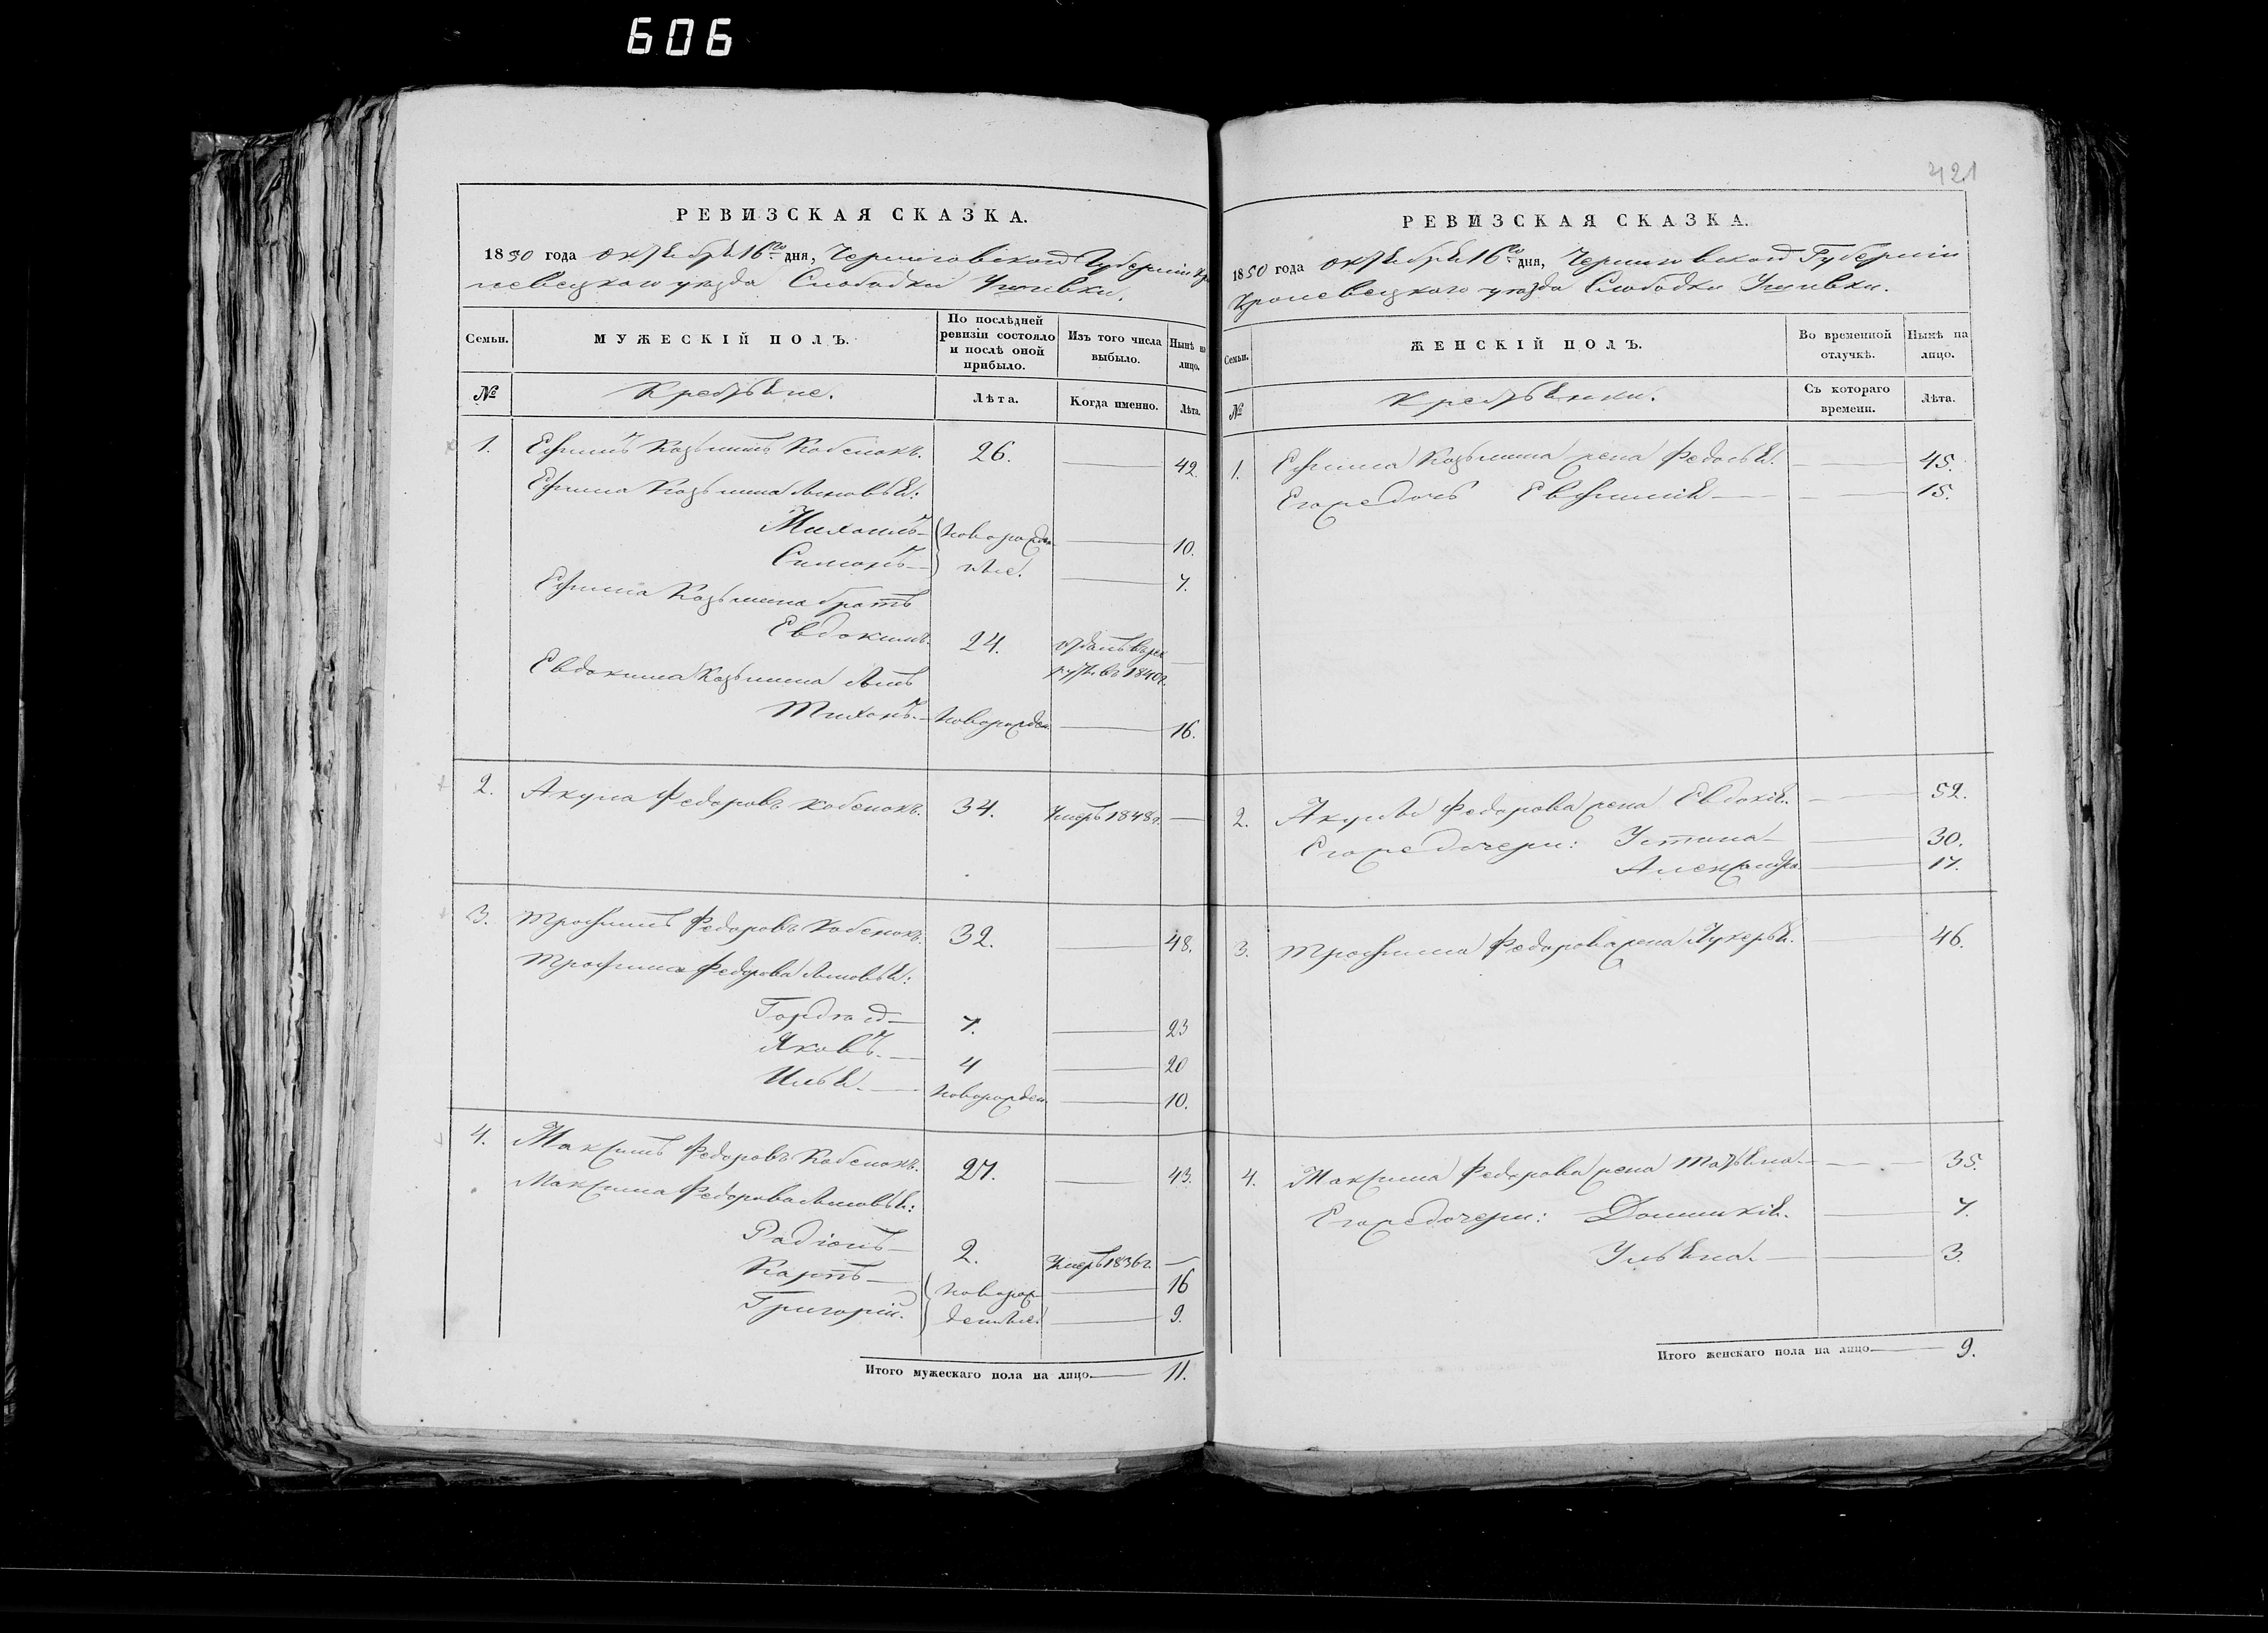 606
421
РЕВИЗСКАЯ СКАЗКА.
1850 года октября 16го дня, Черниговской Губерніи Кро
левецкаго уезда Слободки
Семьи.
МУЖЕСКІЙ ПОЛЪ.
По послѣдней ревизіи состояло и послѣ оной прибыло.
Изъ того числа выбыло.
Нынѣ на лицо.
№
Крестьяне.
Лѣта.
Когда именно.
Лѣта.
1. Ефимъ Козьминъ Кобенокъ. 26. — 42
Ефима Козьмина сыновья:
Михаилъ — новорожден — 10.
Симонъ — ные. — 7.
Ефима Козьмина братъ
Евдокимъ. 24. отданъ в рек —
руты въ 1840г.
Евдокима Козьмина сынъ
Тихонъ. — новорожден. — 16.
2. Акула Федоровъ Кобенокъ. 34. Умеръ 1848г. —
3. Трофимъ Федоровъ Кобенокъ. 32. — 48.
Трофима Федорова сыновья:
Гордѣй — 7. — 23
Яковъ. — 4 — 20
Илья. — новорожден. — 10.
4. Максимъ Федоровъ Кобенокъ. 27. — 43.
Максима Федорова сыновья:
Радіонъ — 2. Умеръ 1836г. —
Карпъ — новорож — 16
Григорій. денные. — 9.
Итого мужескаго пола на лицо. — 11.
РЕВИЗСКАЯ СКАЗКА.
1850 года октября 16го дня, Черниговской Губерніи
Кролевецкаго уезда Слободки
Семьи.
ЖЕНСКІЙ ПОЛЪ.
Во временной отлучкѣ.
Нынѣ на лицо.
№
Крестьянки.
Съ котораго времени.
Лѣта.
1. Ефима Козьмина жена Федосья. — 45.
Его же дочь Евфимія — — 15.
2. Акулы Федорова жена Евдокія. — 52.
Его же дочери: Устина — 30.
Александра — 17.
3. Трофима Федорова жена Лукерья. — 46.
4. Максима Федорова жена Татьяна — — 35.
Его же дочери: Домникія. — 7.
Ульяна. — 3.
Итого женскаго пола на лицо — 9.